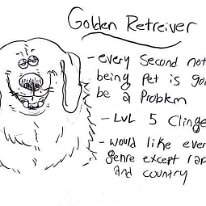 Golden Retreiver
- every second not
being pet is goi
be a Problem
- LvL 5 Clinge
- would like ever
genre except rap
and country